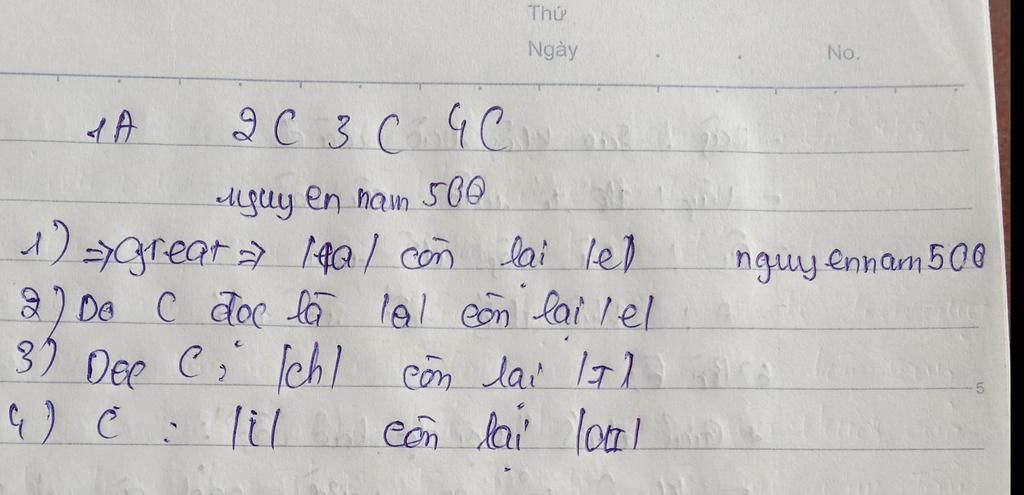 Thứ
Ngày . . No.
1A 2C 3C 4C
nguyen nam 500
1) ⇒ great ⇒ /a/ còn lại /e/ nguyennam500
2) Do C đọc là /ə/ còn lại /e/
3) Đọc C: /ch/ còn lại /I/
4) C : /i/ còn lại /aI/
5